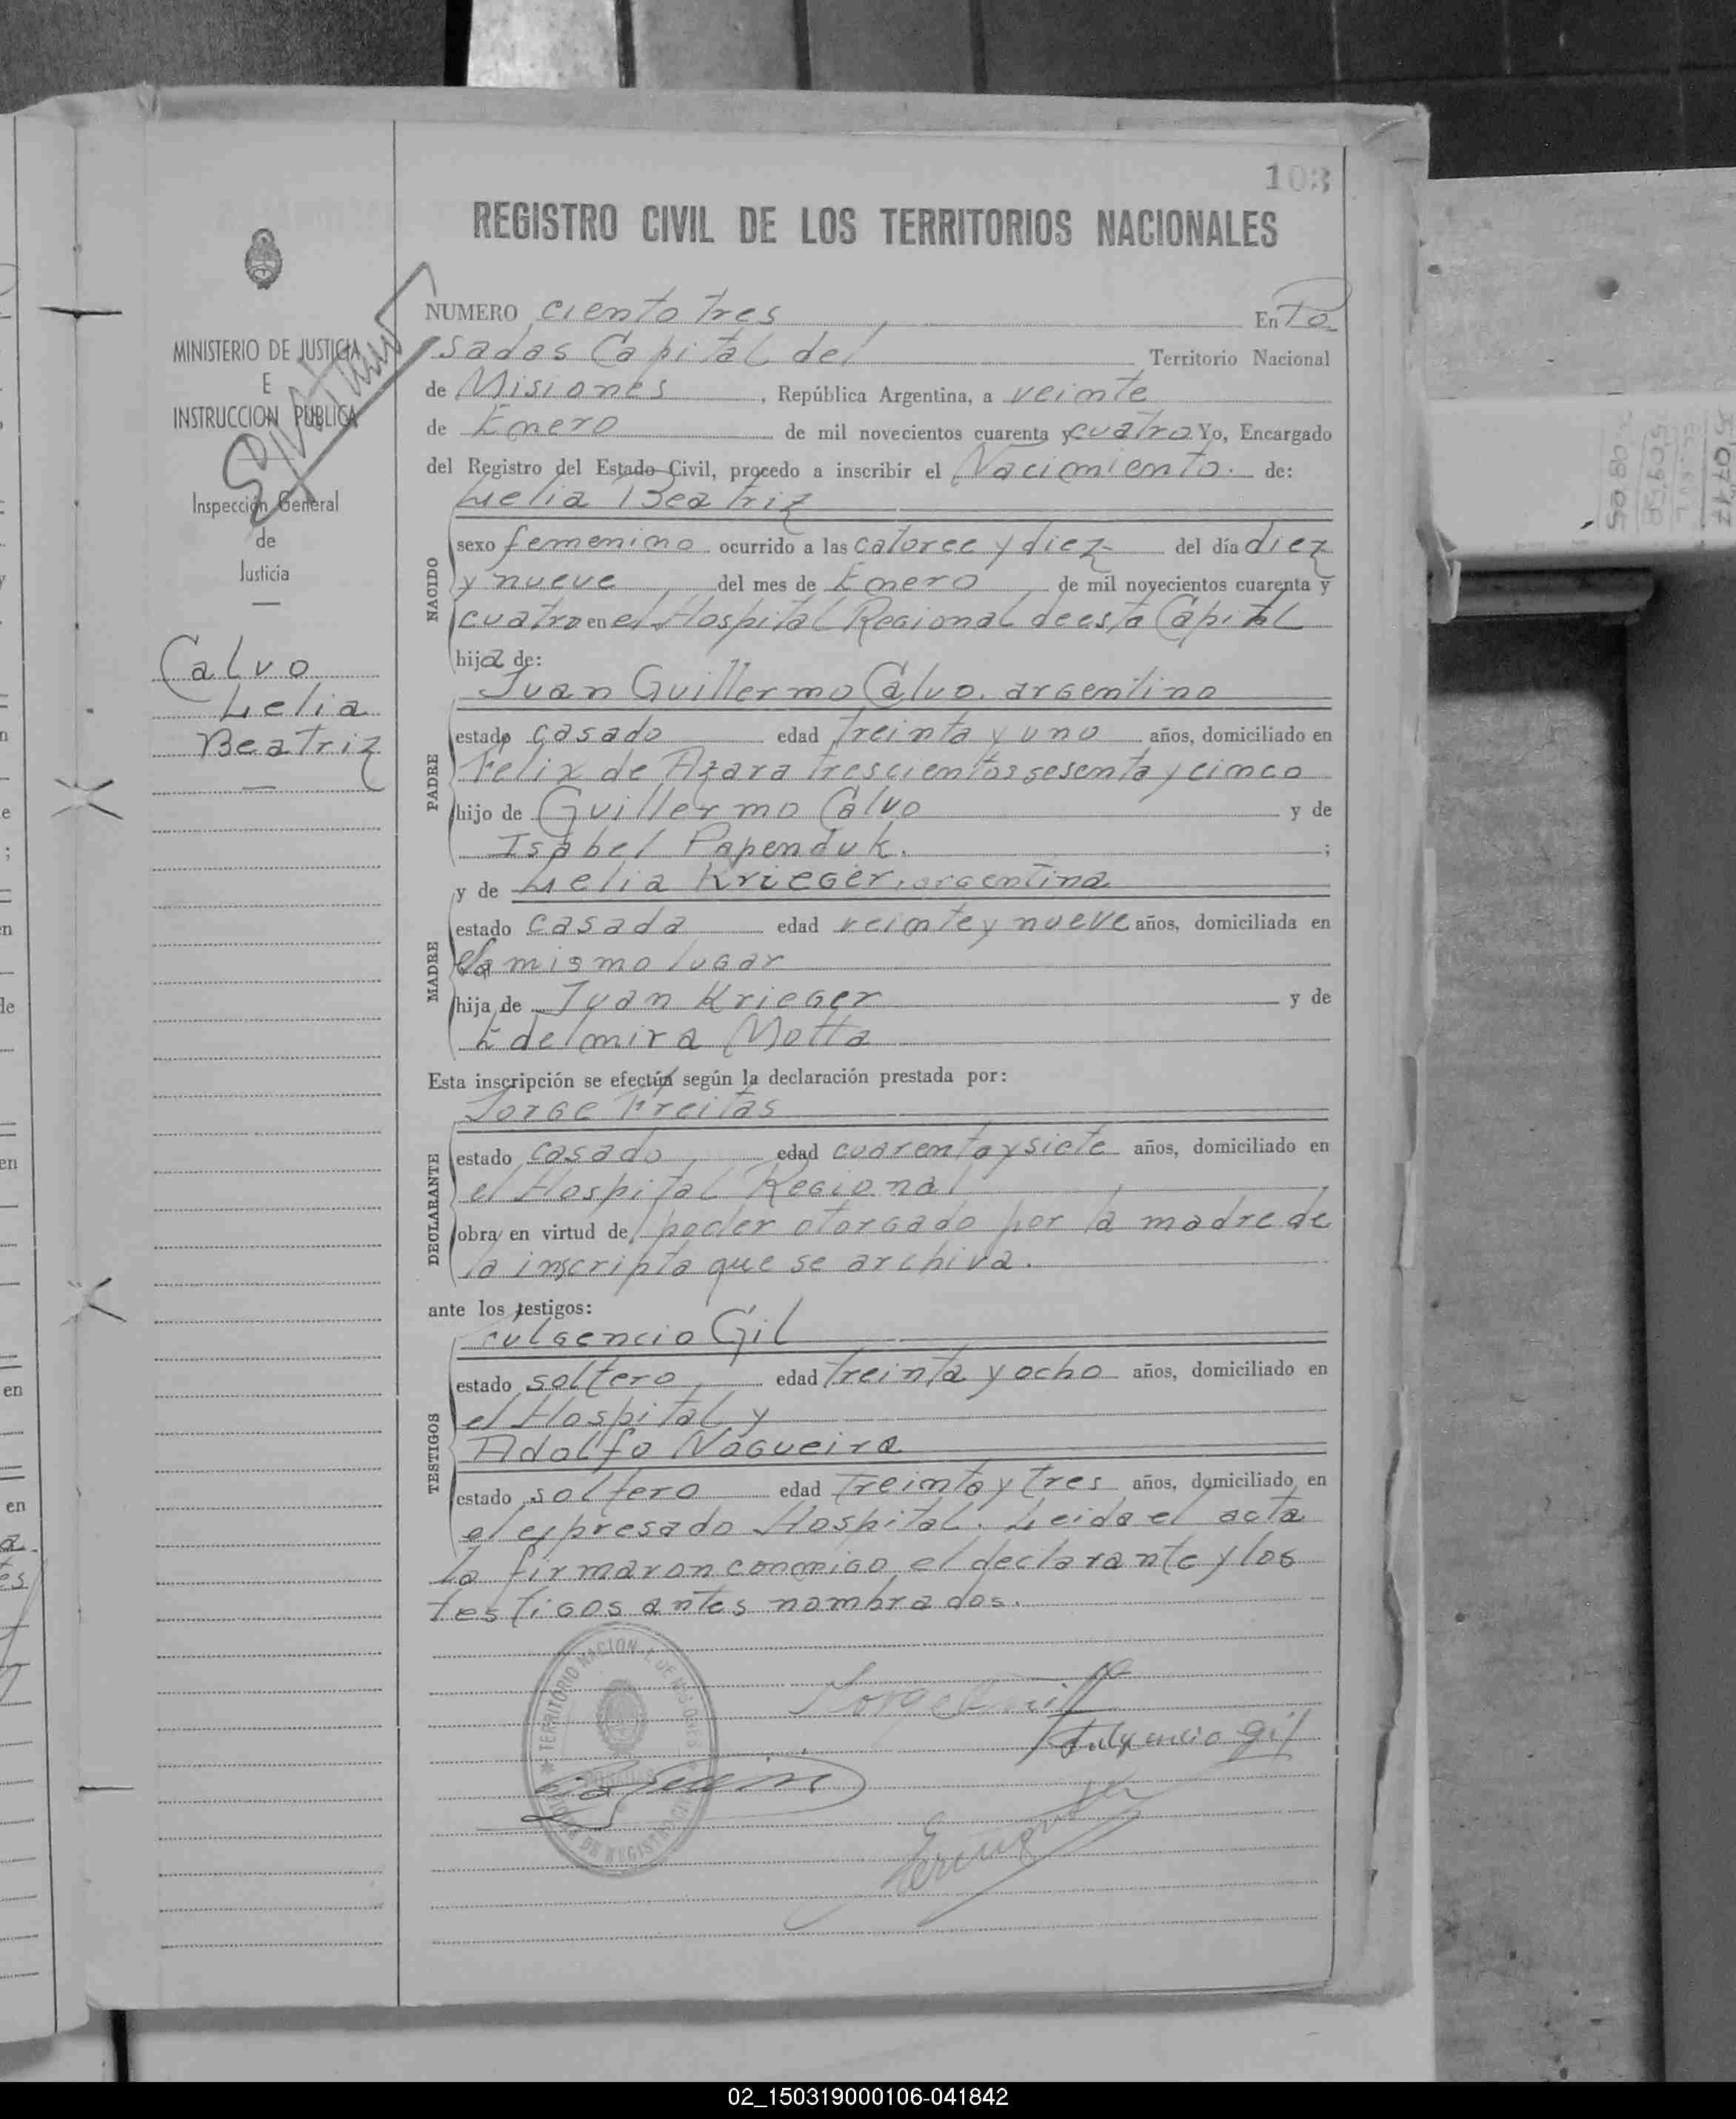 103
REGISTRO CIVIL DE LOS TERRITORIOS NACIONALES
MINISTERIO DE JUSTICIA
E
INSTRUCCION PUBLICA
Inspección General
de
Justicia
Calvo
Lelia
Beatriz
NUMERO ciento tres En Po
sadas Capital del Territorio Nacional
de Misiones, República Argentina, a veinte
de Enero de mil novecientos cuarenta y cuatro Yo, Encargado
del Registro del Estado Civil, procedo a inscribir el Nacimiento. de:
Lelia Beatriz
NACIDO
sexo femenino ocurrido a las catorce y diez del día diez
y nueve del mes de Enero de mil novecientos cuarenta y
cuatro en el Hospital Regional de esta Capital
hija de:
Juan Guillermo Calvo. argentino
PADRE
estado casado edad treinta y uno años, domiciliado en
Felix de Azara trescientos sesenta y cinco
hijo de Guillermo Calvo y de
Isabel Papenduk. ;
y de Lelia Krieger, argentina
MADRE
estado casada edad veinte y nueve años, domiciliada en
mismo lugar
hija de Juan Krieger y de
Edelmira Motta
Esta inscripción se efectúa según la declaración prestada por:
Jorge Freitas
DECLARANTE
estado casado edad cuarenta y siete años, domiciliado en
el Hospital Regional
obra en virtud del poder otorgado por la madre de
la inscripta que se archiva.
ante los testigos:
Fulgencio Gil
TESTIGOS
estado soltero edad treinta y ocho años, domiciliado en
el Hospital y
Adolfo Nogueira
estado soltero edad treinta y tres años, domiciliado en
el expresado Hospital. Leida el acta
la firmaron conmigo el declarante y los
testigos antes nombrados.
TERRITORIO NACIONAL DE MISIONES
Fulgencio Gil
02_150319000106-041842